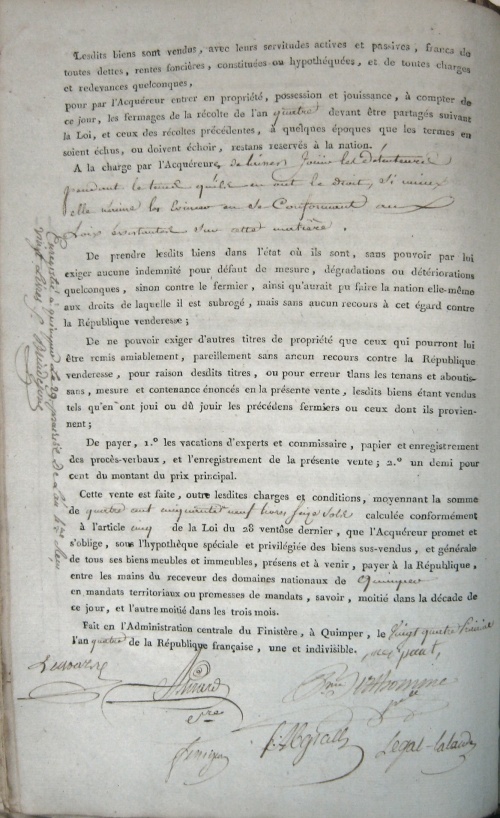 Lesdits biens sont vendus, avec leurs servitudes actives et passives, francs de
toutes dettes, rentes foncières, constituées ou hypothéquées, et de toutes charges
et redevances quelconques,
pour par l'Acquéreur entrer en propriété, possession et jouissance, à compter de
ce jour, les fermages de la récolte de l'an quatre devant être partagés suivant
la Loi, et ceux des récoltes précédentes, à quelques époques que les termes en
soient échus, ou doivent échoir, restans reservés à la nation.
A la charge par l'Acquéreure de laisser jouir les détenteurs
pendant le tems qu'ils en ont le droit, si mieux
elle n'aime les en se Conformant aux
Loix existantes sur cette matière.
De prendre lesdits biens dans l'état où ils sont, sans pouvoir par lui
exiger aucune indemnité pour défaut de mesure, dégradations ou détériorations
quelconques, sinon contre le fermier, ainsi qu'aurait pu faire la nation elle-même
aux droits de laquelle il est subrogé, mais sans aucun recours à cet égard contre
la République venderesse;
De ne pouvoir exiger d'autres titres de propriété que ceux qui pourront lui
être remis amiablement, pareillement sans aucun recours contre la République
venderesse, pour raison desdits titres, ou pour erreur dans les tenans et aboutis-
sans, mesure et contenance énoncés en la présente vente, lesdits biens étant vendus
tels qu'en ont joui ou dû jouir les précédens fermiers ou ceux dont ils provien-
nent;
De payer, 1.° les vacations d'experts et commissaire, papier et enregistrement
des procès-verbaux, et l'enregistrement de la présente vente; 2.° un demi pour
cent du montant du prix principal.
Cette vente est faite, outre lesdites charges et conditions, moyennant la somme
de quatre cent cinquante neuf livres seize sols calculée conformément
à l'article cinq de la Loi du 28 ventôse dernier, que l'Acquéreur promet et
s'oblige, sous l'hypothèque spéciale et privilégiée des biens sus-vendus, et générale
de tous ses biens meubles et immeubles, présens et à venir, payer à la République,
entre les mains du receveur des domaines nationaux de Quimper
en mandats territoriaux ou promesses de mandats, savoir, moitié dans la décade de
ce jour, et l'autre moitié dans les trois mois.
Fait en l'Administration centrale du Finistère, à Quimper, le vingt quatre
l'an quatre de la République française, une et indivisible.
Prudhomme
Legal-Lalande
Enregistré à quimper le 29 de l'an 4 reçu
vingt livres